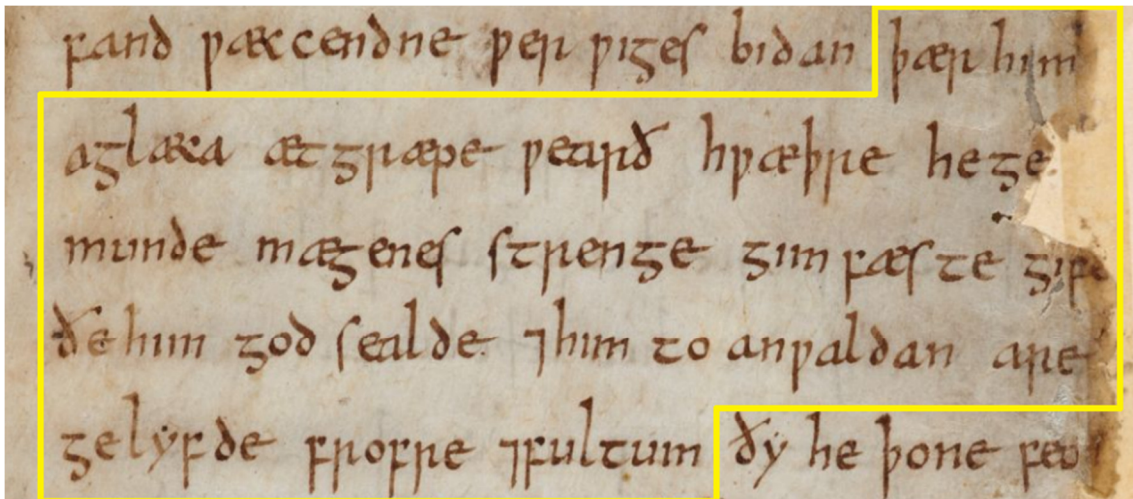 fand ƿæccendne ƿer ƿiges bidan þær him
aglæca ætgræpe ƿearð hƿæþre he ge
munde mægenes strenge gim fæste gife
ðe him god sealde ⁊him to anƿaldan are
gelyfde frofre ⁊fultum ðy he þone feo